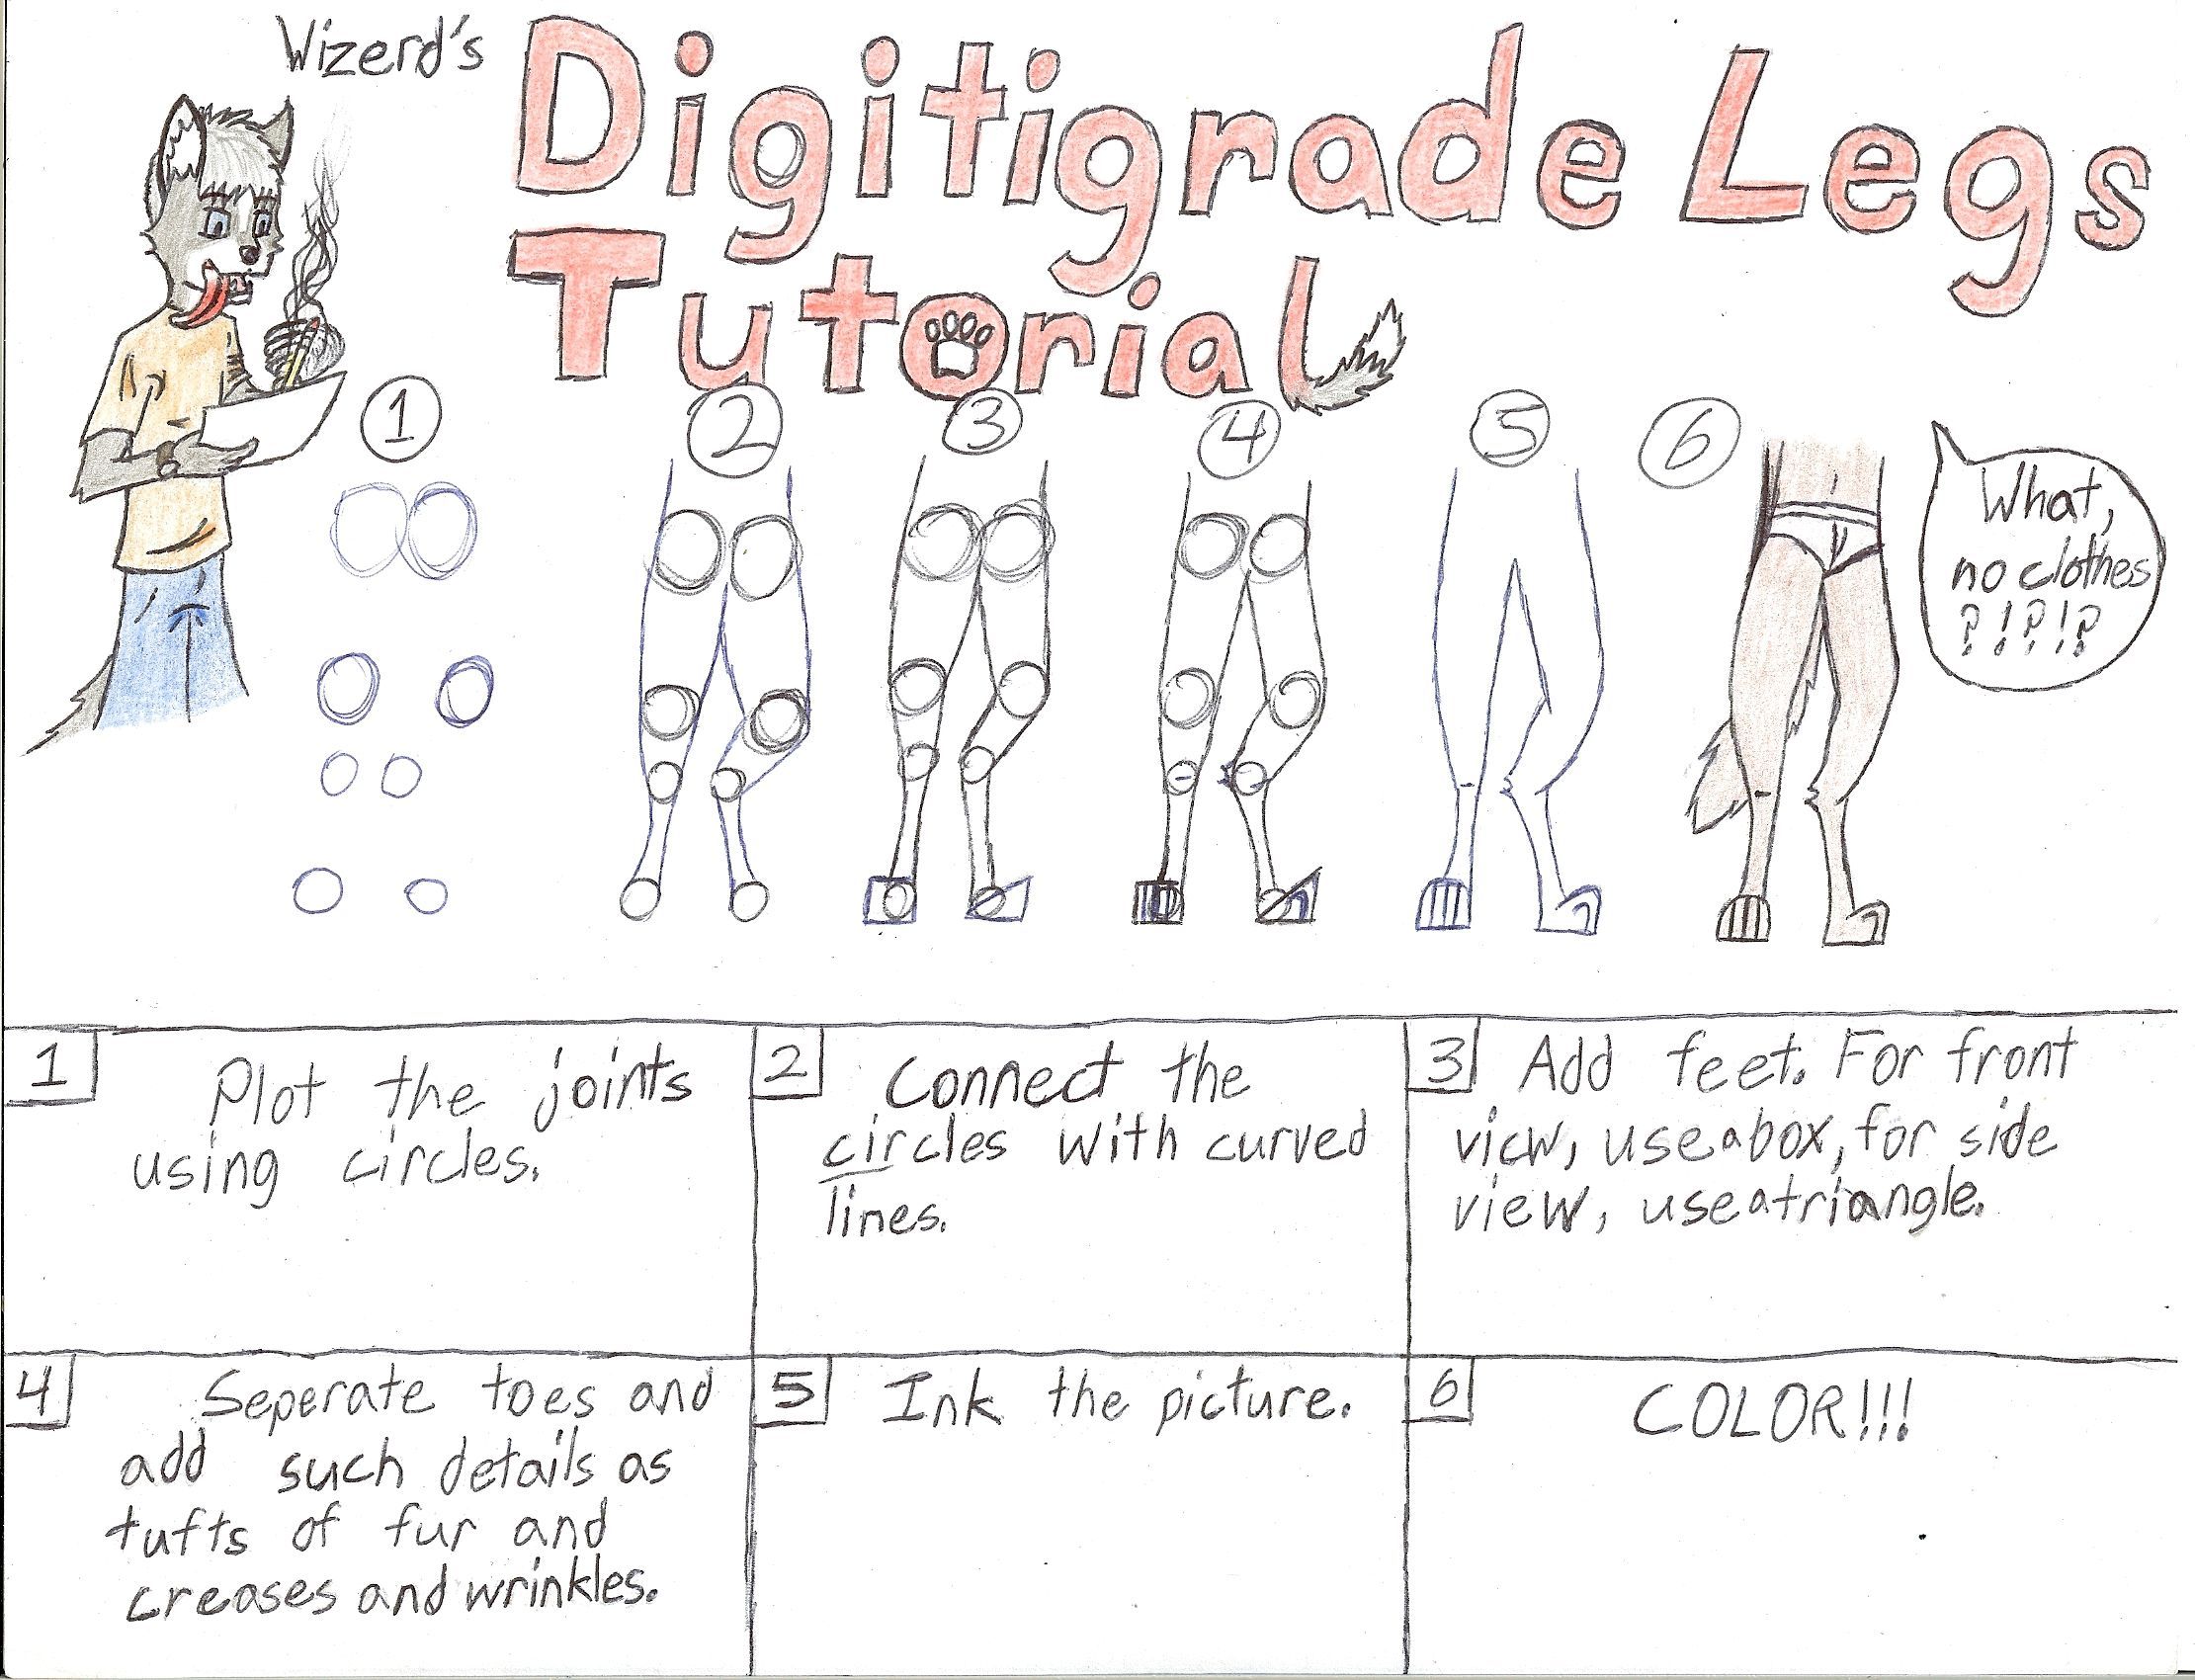 Wizerd's
Digitigrade Legs
Tutorial
1
2
3
4
5
6
What,
no clothes
?!?!?
1
Plot the joints
using circles.
2
Connect the
circles with curved
lines.
3
Add feet. For front
view, use a box, for side
view, use a triangle.
4
Seperate toes and
add such details as
tufts of fur and
creases and wrinkles.
5
Ink the picture.
6
COLOR!!!